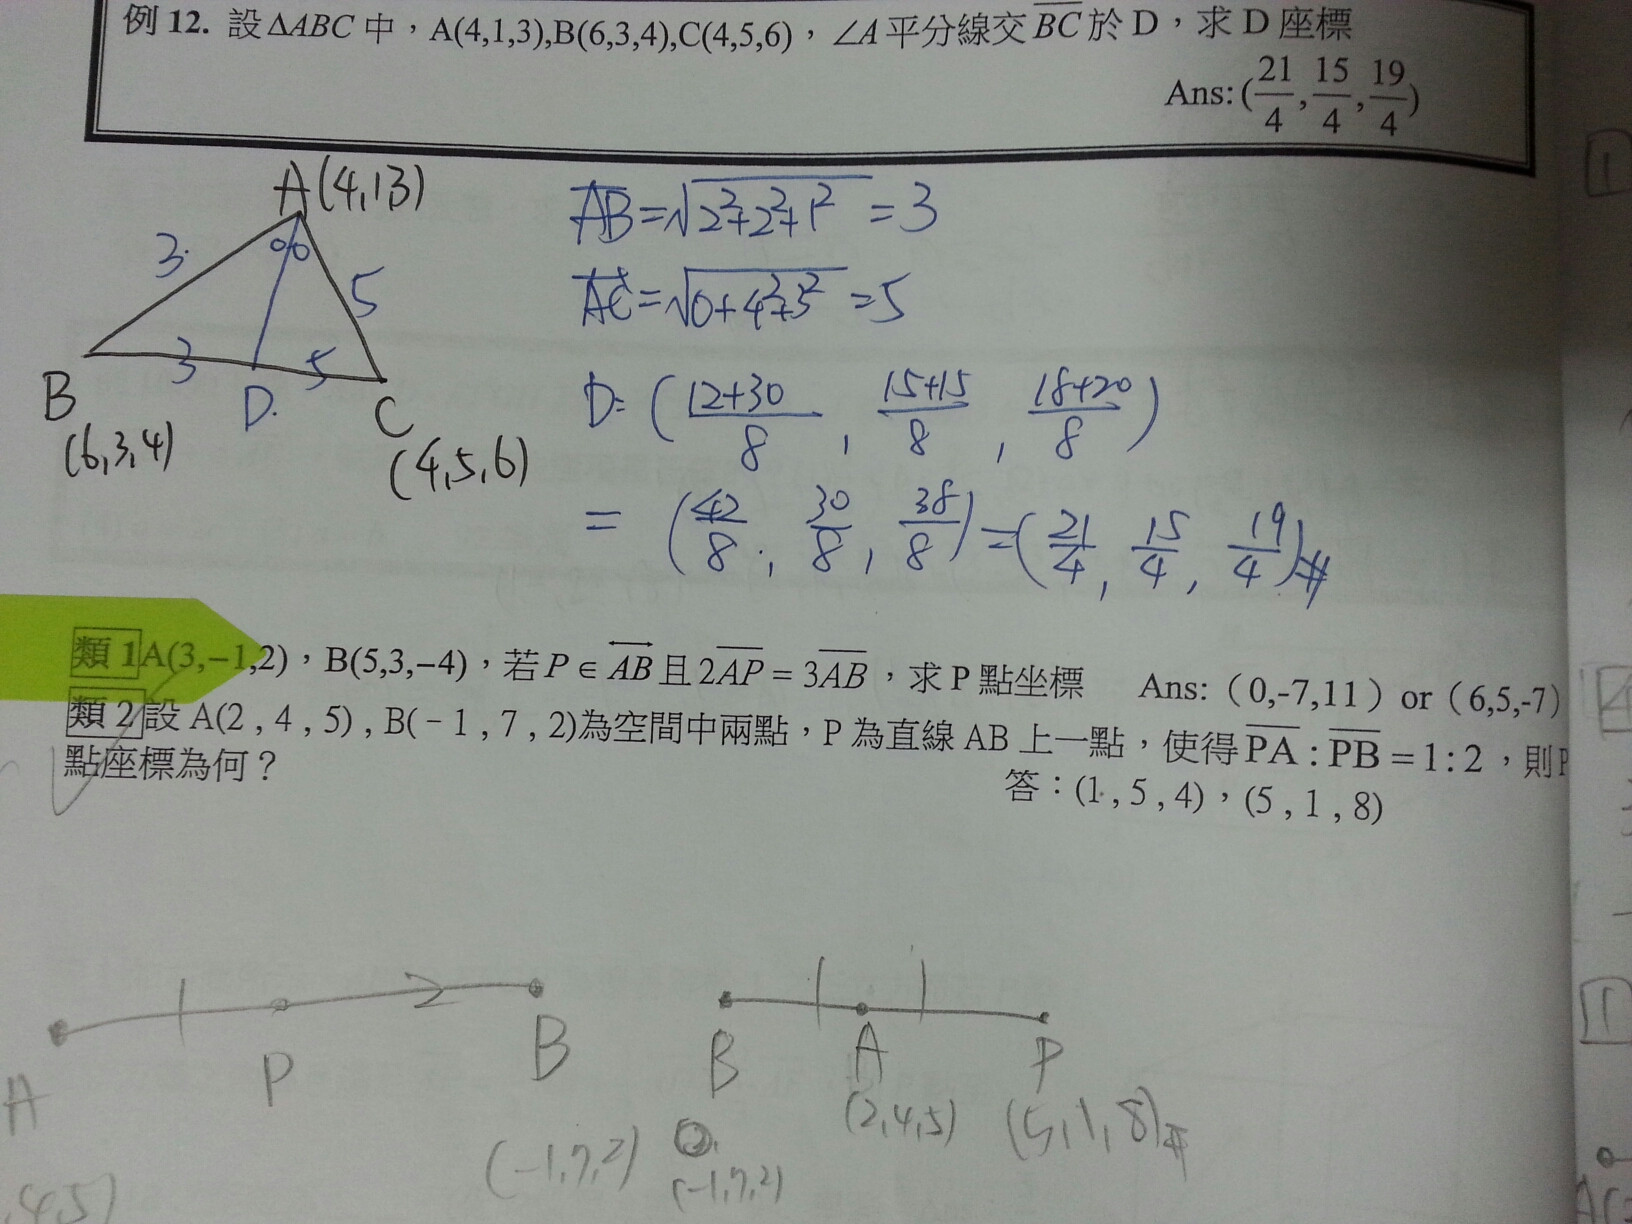 例 12. 設ΔABC 中，A(4,1,3),B(6,3,4),C(4,5,6)，∠A 平分線交 BC 於 D，求 D 座標
Ans: (21/4, 15/4, 19/4)
A(4,13)
3
5
3
5
B
D.
C
(6,3,4)
(4,5,6)
AB=√2²+2²+1² =3
AC=√0+4²+3² =5
D= (12+30/8, 15+15/8, 18+20/8)
= (42/8, 30/8, 38/8)=(21/4, 15/4, 19/4)#
類 1 A(3,−1,2)，B(5,3,−4)，若 P ∈ AB 且 2AP = 3AB，求 P 點坐標 Ans:（0,-7,11）or（6,5,-7）
類 2 設 A(2 , 4 , 5) , B(−1 , 7 , 2)為空間中兩點，P 為直線 AB 上一點，使得 PA : PB = 1 : 2，則 P
點座標為何？
答：(1 , 5 , 4)，(5 , 1 , 8)
A
P
B
B
A
P
,4,5)
(-1,7,2)
(-1,7,2)
(2,4,5)
(5,1,8)#